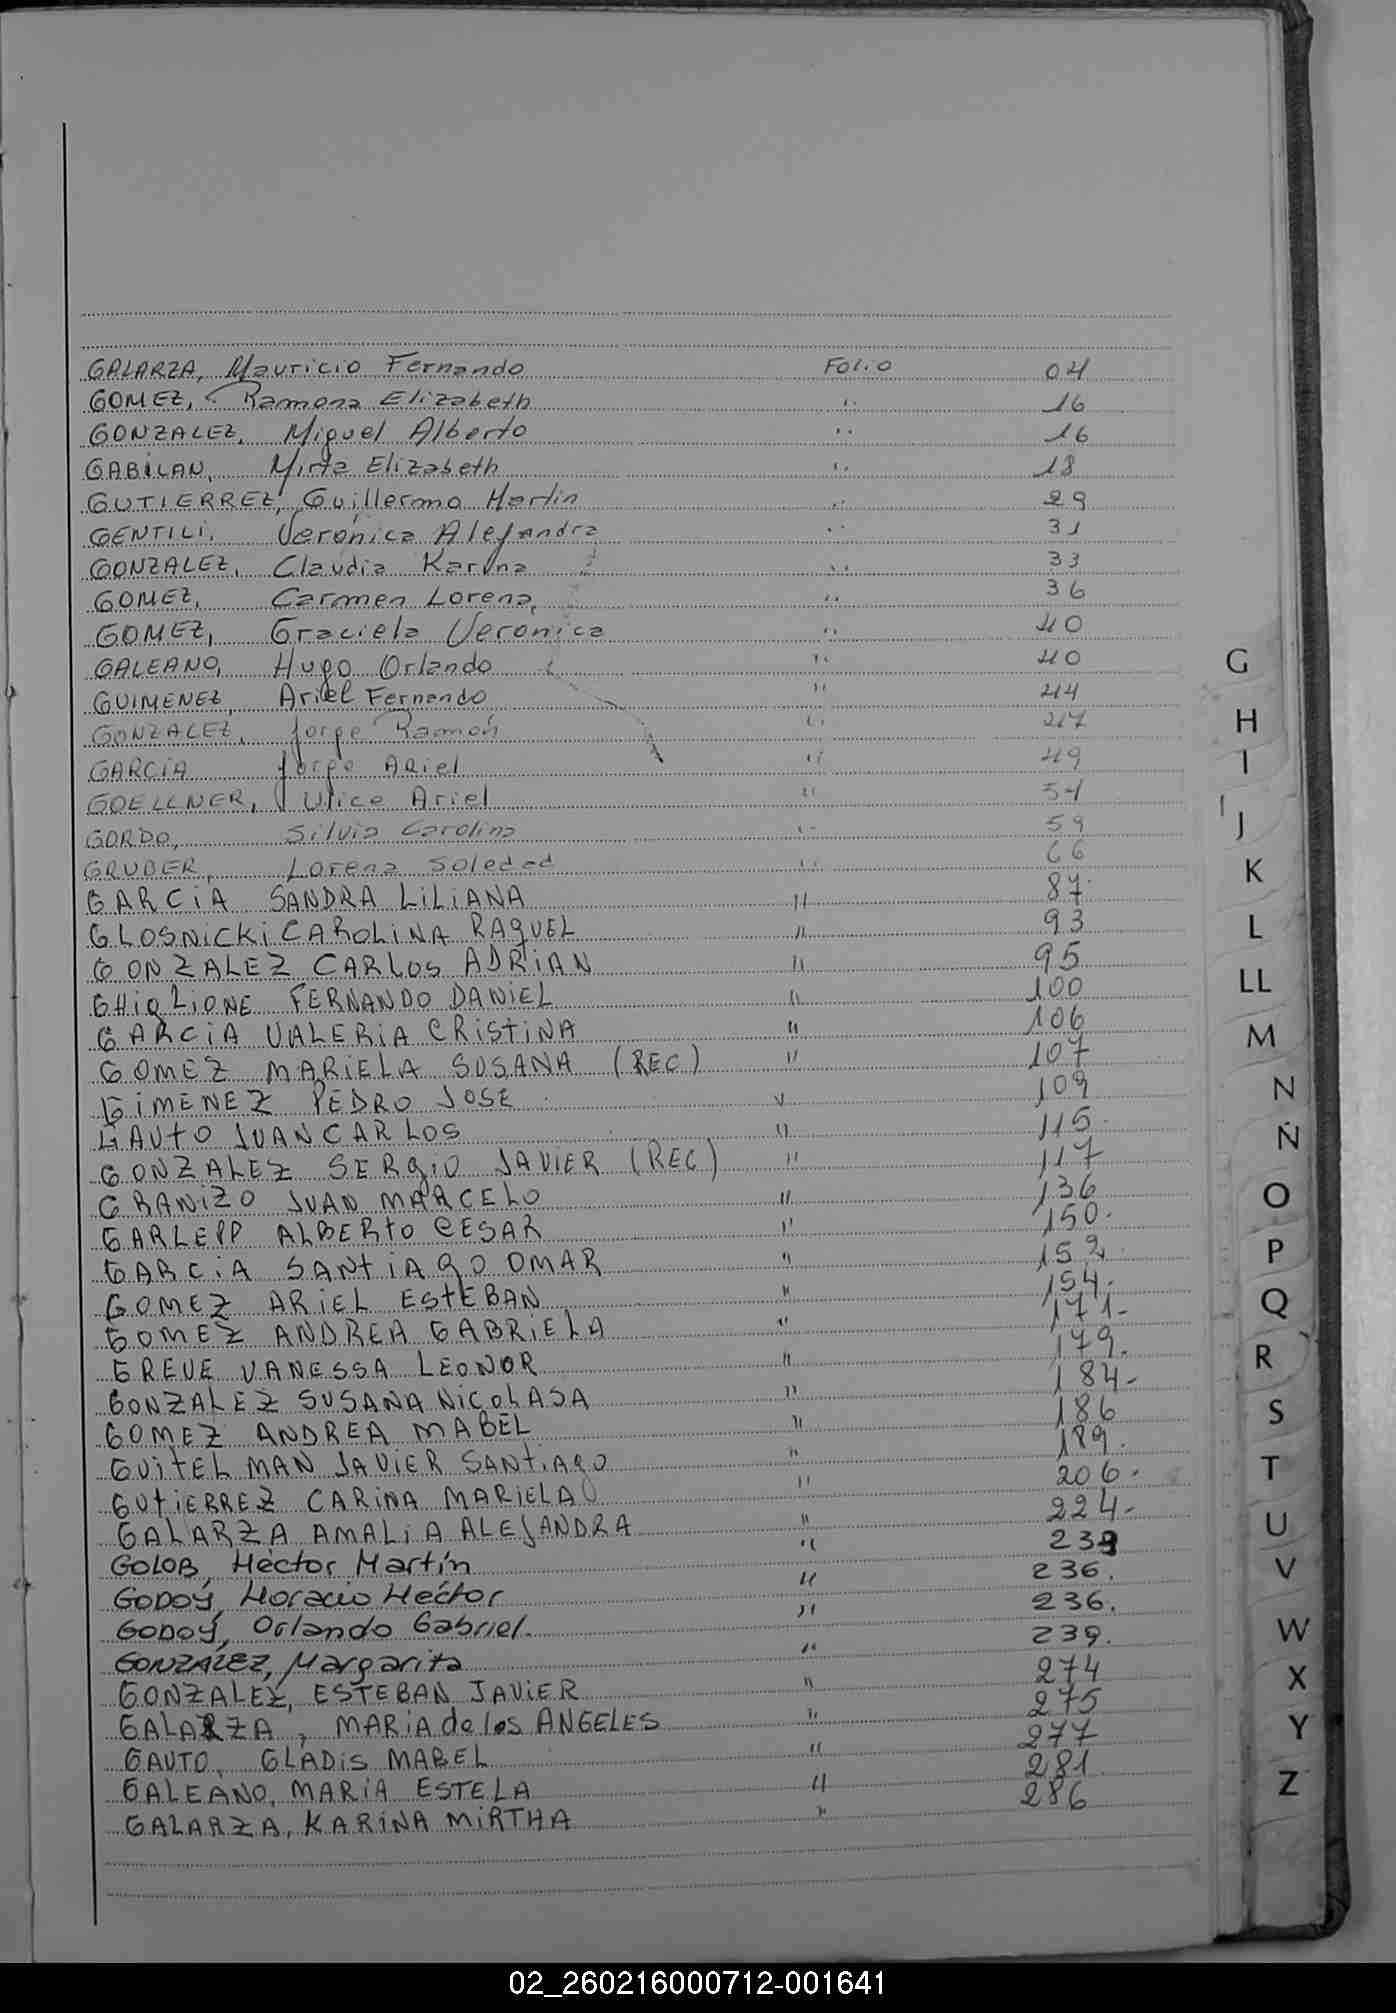 GALARZA, Mauricio Fernando Folio 04
GOMEZ, Ramona Elizabeth " 16
GONZALEZ, Miguel Alberto " 16
GABILAN, Mirta Elizabeth " 18
GUTIERREZ, Guillermo Martin " 29
GENTILI, Veronica Alejandra " 31
GONZALEZ, Claudia Karina " 33
GOMEZ, Carmen Lorena, " 36
GOMEZ, Graciela Veronica " 40
GALEANO, Hugo Orlando " 40
GUIMENEZ, Ariel Fernando " 44
GONZALEZ, Jorge Ramón " 47
GARCIA Jorge Ariel " 49
GOELLNER, Ulice Ariel " 54
GORDO, Silvia Carolina " 59
GRUBER, Lorena Soledad " 66
GARCIA SANDRA LILIANA " 87
GLOSNICKI CAROLINA RAQUEL " 93
GONZALEZ CARLOS ADRIAN " 95
GHIGLIONE FERNANDO DANIEL " 100
GARCIA VALERIA CRISTINA " 106
GOMEZ MARIELA SUSANA (REC) " 107
GIMENEZ PEDRO JOSE " 109
GAUTO JUAN CARLOS " 115.
GONZALEZ SERGIO JAVIER (REC) " 117
GRANIZO JUAN MARCELO " 136
GARLEPP ALBERTO CESAR " 150.
GARCIA SANTIAGO OMAR " 152.
GOMEZ ARIEL ESTEBAN " 154.
GOMEZ ANDREA GABRIELA " 171-
GREVE VANESSA LEONOR " 179.
GONZALEZ SUSANA NICOLASA " 184-
GOMEZ ANDREA MABEL " 186
GUITELMAN JAVIER SANTIAGO " 189.
GUTIERREZ CARINA MARIELA " 206.
GALARZA AMALIA ALEJANDRA " 224-
GOLOB, Héctor Martín "
GODOY, Horacio Héctor " 236.
GODOY, Orlando Gabriel. " 236.
GONZÁLEZ, Margarita " 239.
GONZALEZ, ESTEBAN JAVIER " 274
GALARZA, MARIA de los ANGELES " 275
GAUTO, GLADIS MABEL " 277
GALEANO, MARIA ESTELA " 281
GALARZA, KARINA MIRTHA " 286
G
H
I
J
K
L
LL
M
N
Ñ
O
P
Q
R
S
T
U
V
W
X
Y
Z
02_260216000712-001641